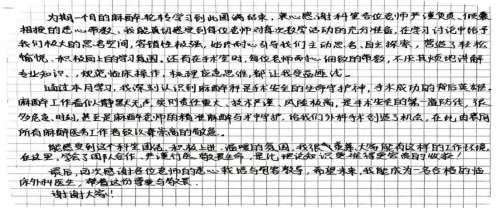 为期一个月的麻醉轮转学习到此圆满结束，衷心感谢科室各位老师严谨负责、倾囊
相授的悉心带教，我能真切感受到每位老师对每次教学活动的充分准备，在学习讨论中给予
我们极大的思考空间，容错性极强，始终耐心引导我们主动思考、自主探索，营造了轻松
愉悦、积极向上的学习氛围。还有在手术室时，每位老师耐心细致的带教，不厌其烦地讲解
专业知识、规范临床操作，梳理应急思维，都让我受益匪浅。
通过本月学习，我深刻认识到麻醉科是手术室的生命守护神，手术成功的背后英雄。
麻醉工作看似静默无声，实则责任重大、技术严谨、风险极高，是手术安全的第一道防线，很
多危急时刻，甚至是麻醉老师的精准麻醉与术中守护，给我们外科手术创造了机会，在此向
所有麻醉医务工作者致以最崇高的敬意。
能感受到这个科室团结、积极上进、温暖的氛围，我很气羡慕大家能有这样的工作环境，
在这里，学会了团队合作、严谨行医、敬畏生命，是比理论知识更值得更宝贵的收获！
最后，再次感谢各位老师的悉心栽培与包容教导，希望未来，我能成为一名合格的临
床外科医生，带着这份尊重与敬畏。
谢谢大家！